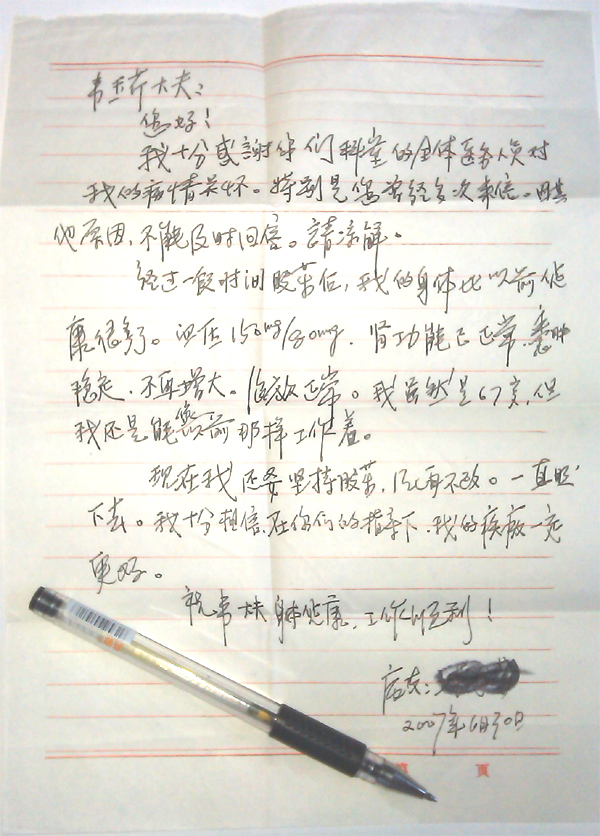 韦 大夫:
您好!
我十分感謝你们科室的全体医务人员对
我的病情关怀。特别是您曾经多次来信。因其
他原因,不能及时回信。請凉解。
经过一段时间服药后,我的身体比以前健
康很多了。血压150mg/80mg,肾功能已正常,囊肿
稳定,不再增大。 正常。我虽然是67岁,但
我还是能像以前那样工作着。
现在我还要坚持服药, 不改。一直照
下去。我十分相信在你们的指导下,我的疾病一定
更好。
祝韦大夫身体健康,工作顺利!
病友:
2007年6月30日
第 頁